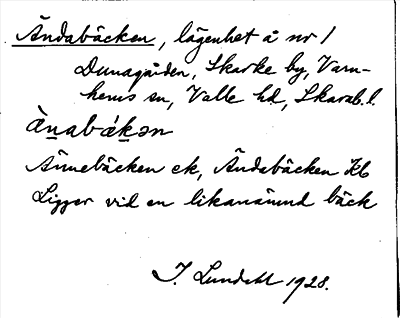 Ändabäcken, lägenhet å nr 1
Dunagården, Skarke by, Varn-
hems sn, Valle hd, Skarab. l.
ä̀nabǽkən
Ännebäcken ek, Ändabäcken Kb
Ligger vid en likanämnd bäck
J. Lundahl 1928.